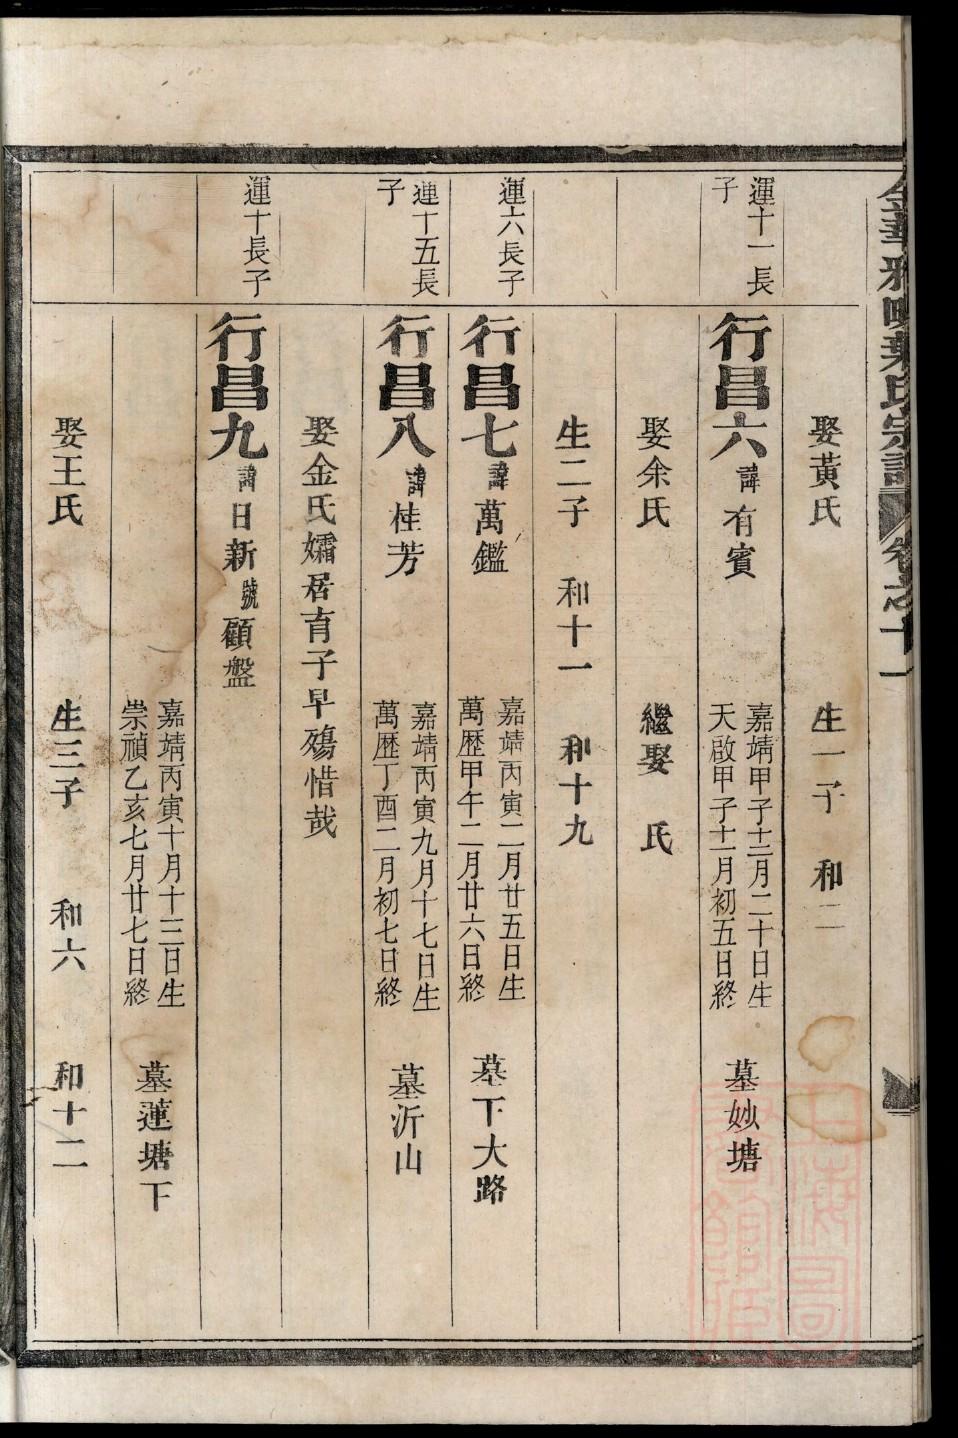 金華雅畈葉氏宗譜 卷之十一
娶黃氏 生一子 和二
運十一長子
行昌六 諱有賓 嘉靖甲子十二月二十日生 天啟甲子十一月初五日終 墓妙塘
娶余氏 繼娶 氏
生二子 和十一 和十九
運六長子
行昌七 諱萬鑑 嘉靖丙寅二月廿五日生 萬歷甲午二月廿六日終 墓下大路
運十五長子
行昌八 諱桂芳 嘉靖丙寅九月十七日生 萬歷丁酉二月初七日終 墓沂山
娶金氏孀居育子早殤惜哉
運十長子
行昌九 諱日新 號顧盤
嘉靖丙寅十月十三日生 崇禎乙亥七月廿七日終 墓蓮塘下
娶王氏 生三子 和六 和十二